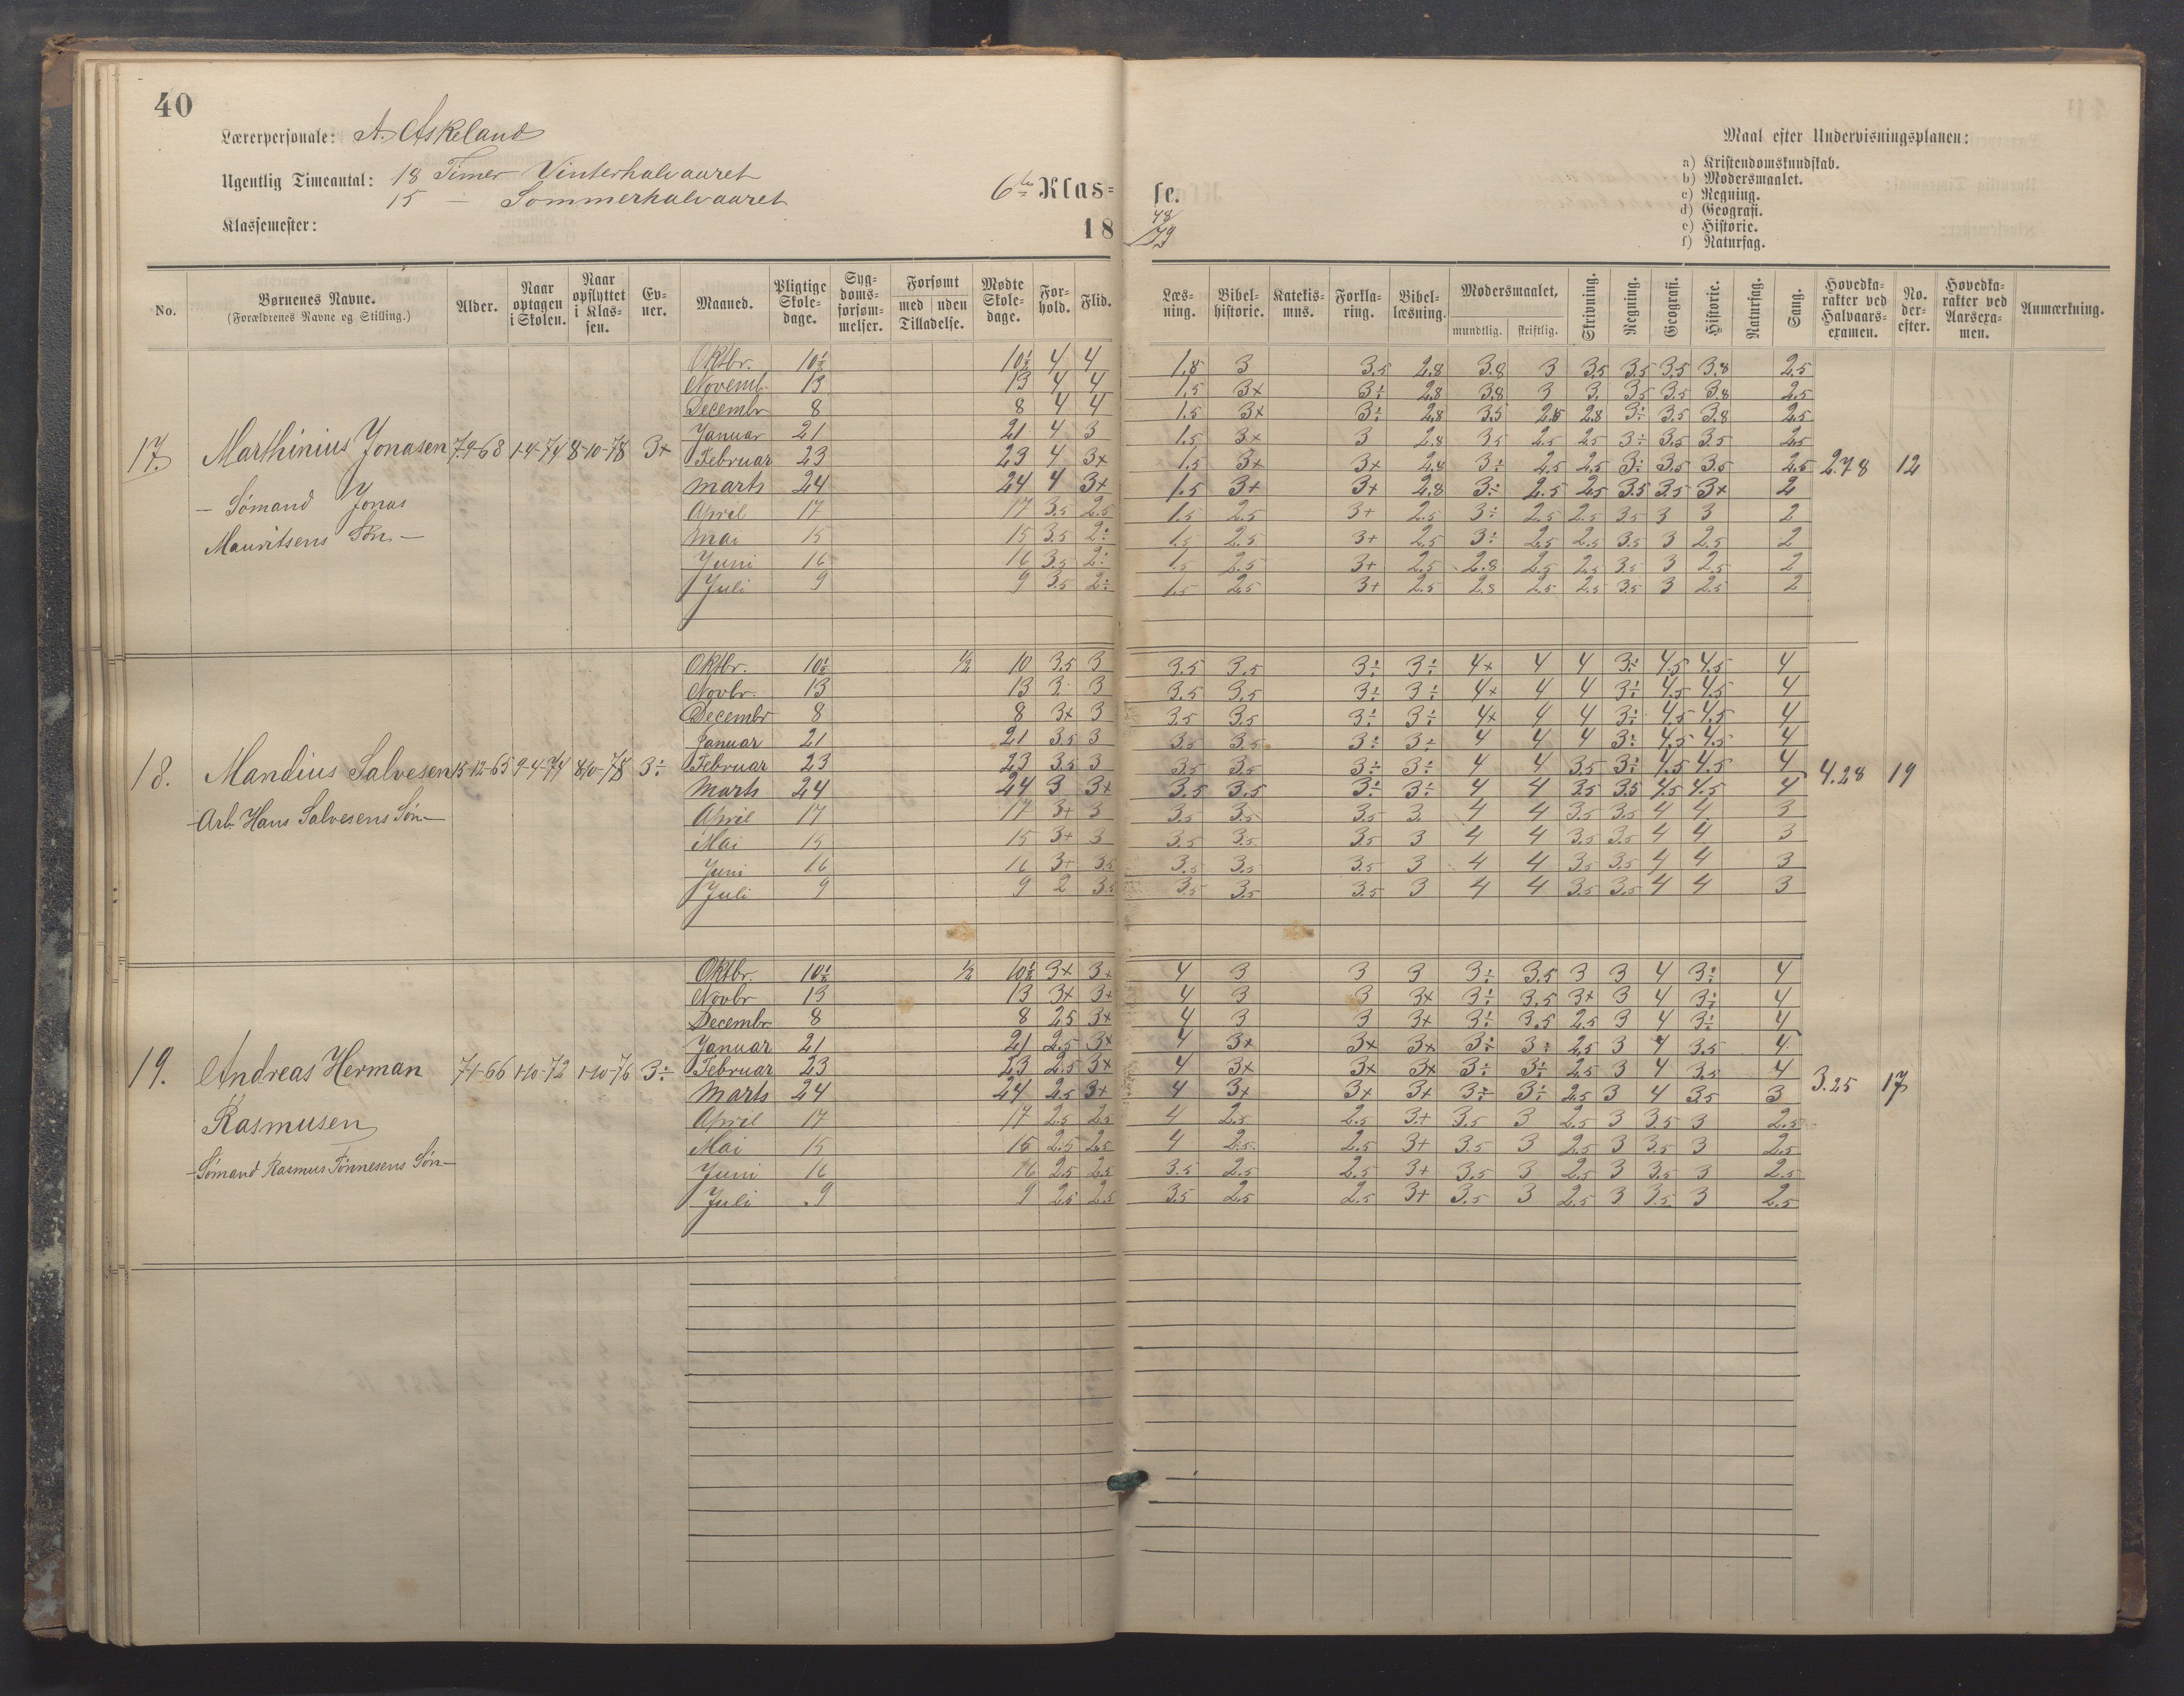 40
Lærerpersonale: A. Askeland
Ugentlig Timeantal: 18 Timer Vinterhalvaaret
15 — Sommerhalvaaret
Klassemester:
6te Klas=
se.
18
78/79
Maal efter Undervisningsplanen:
a) Kristendomskundskab.
b) Modersmaalet.
c) Regning.
d) Geografi.
e) Historie.
f) Naturfag.
No. | Børnenes Navne. (Forældrenes Navne og Stilling.) | Alder. | Naar optagen i Skolen. | Naar opflyttet i Klassen. | Evner. | Maaned. | Pligtige Skoledage. | Sygdomsforsømmelser. | Forsømt med Tilladelse. | uden | Mødte Skoledage. | Forhold. | Flid. | Læsning. | Bibelhistorie. | Katekismus. | Forklaring. | Bibellæsning. | Modersmaalet, mundtlig. | skriftlig. | Skrivning. | Regning. | Geografi. | Historie. | Naturfag. | Sang. | Hovedkarakter ved Halvaarsexamen. | No. derefter. | Hovedkarakter ved Aarsexamen. | Anmærkning.
17. Marthinius Jonasen 7-9-68 1-4-74 8-10-78 3+ 2.78 12
— Sømand Jonas
Mauritsens Søn. —
Oktbr. 10½ 10½ 4 4 1.8 3 3.5 2.8 3.8 3 3.5 3.5 3.5 3.8 2.5
Novemb. 13 13 4 4 1.5 3+ 3÷ 2.8 3.8 3 3. 3.5 3.5 3.8 2.5
Decembr 8 8 4 4 1.5 3+ 3÷ 2.8 3.5 2.5 2.8 3÷ 3.5 3.8 2.5
Januar 21 21 4 3 1.5 3+ 3 2.8 3.5 2.5 2.5 3÷ 3.5 3.5 2.5
Februar 23 23 4 3+ 1.5 3+ 3+ 2.8 3÷ 2.5 2.5 3÷ 3.5 3.5 2.5
Marts 24 24 4 3+ 1.5 3+ 3+ 2.8 3÷ 2.5 2.5 3.5 3.5 3+ 2
April 17 17 3.5 2.5 1.5 2.5 3+ 2.5 3÷ 2.5 2.5 3.5 3 3 2
Mai 15 15 3.5 2÷ 1.5 2.5 3+ 2.5 3÷ 2.5 2.5 3.5 3 2.5 2
Juni 16 16 3.5 2÷ 1.5 2.5 3+ 2.5 2.8 2.5 2.5 3.5 3 2.5 2
Juli 9 9 3.5 2÷ 1.5 2.5 3+ 2.5 2.8 2.5 2.5 3.5 3 2.5 2
18. Mandius Salvesen 15-12-65 9-4-74 8-10-78 3÷ 4.28 19
— Arb. Hans Salvesens Søn —
Oktbr. 10½ ½ 10 3.5 3 3.5 3.5 3÷ 3÷ 4+ 4 4 3÷ 4.5 4.5 4
Novbr. 13 13 3. 3 3.5 3.5 3÷ 3÷ 4+ 4 4 3÷ 4.5 4.5 4
Decembr 8 8 3+ 3 3.5 3.5 3÷ 3÷ 4+ 4 4 3÷ 4.5 4.5 4
Januar 21 21 3.5 3 3.5 3.5 3÷ 3÷ 4 4 4 3÷ 4.5 4.5 4
Februar 23 23 3.5 3 3.5 3.5 3÷ 3÷ 4 4 3.5 3÷ 4.5 4.5 4
Marts 24 24 3 3+ 3.5 3.5 3÷ 3÷ 4 4 3.5 3.5 4.5 4.5 4
April 17 17 3+ 3 3.5 3.5 3.5 3. 4 4 3.5 3.5 4 4 3
Mai 15 15 3+ 3 3.5 3.5 3.5 3 4 4 3.5 3.5 4 4 3
Juni 16 16 3+ 3.5 3.5 3.5 3.5 3 4 4 3.5 3.5 4 4 3
Juli 9 9 2 3.5 3.5 3.5 3.5 3 4 4 3.5 3.5 4 4 3
19. Andreas Herman 7-1-66 1-10-72 1-10-76 3÷ 3.25 17
Rasmusen
— Sømand Rasmus Tønnesens Søn —
Oktbr. 10½ ½ 10½ 3+ 3+ 4 3 3 3 3÷ 3.5 3 3 4 3÷ 4
Novbr 13 13 3+ 3+ 4 3 3 3+ 3÷ 3.5 3+ 3 4 3÷ 4
Decembr 8 8 2.5 3+ 4 3 3 3+ 3÷ 3.5 2.5 3 4 3÷ 4
Januar 21 21 2.5 3+ 4 3+ 3+ 3+ 3÷ 3÷ 2.5 3 4 3.5 4
Februar 23 23 2.5 3+ 4 3+ 3+ 3+ 3÷ 3÷ 2.5 3 4 3.5 4
Marts 24 24 2.5 3+ 4 3+ 3+ 3+ 3÷ 3÷ 2.5 3 4 3.5 3
April 17 17 2.5 2.5 4 2.5 2.5 3+ 3.5 3 2.5 3 3.5 3 2.5
Mai 15 15 2.5 2.5 4 2.5 2.5 3+ 3.5 3 2.5 3 3.5 3 2.5
Juni 16 16 2.5 2.5 3.5 2.5 2.5 3+ 3.5 3 2.5 3 3.5 3 2.5
Juli 9 9 2.5 2.5 3.5 2.5 2.5 3+ 3.5 3 2.5 3 3.5 3 2.5